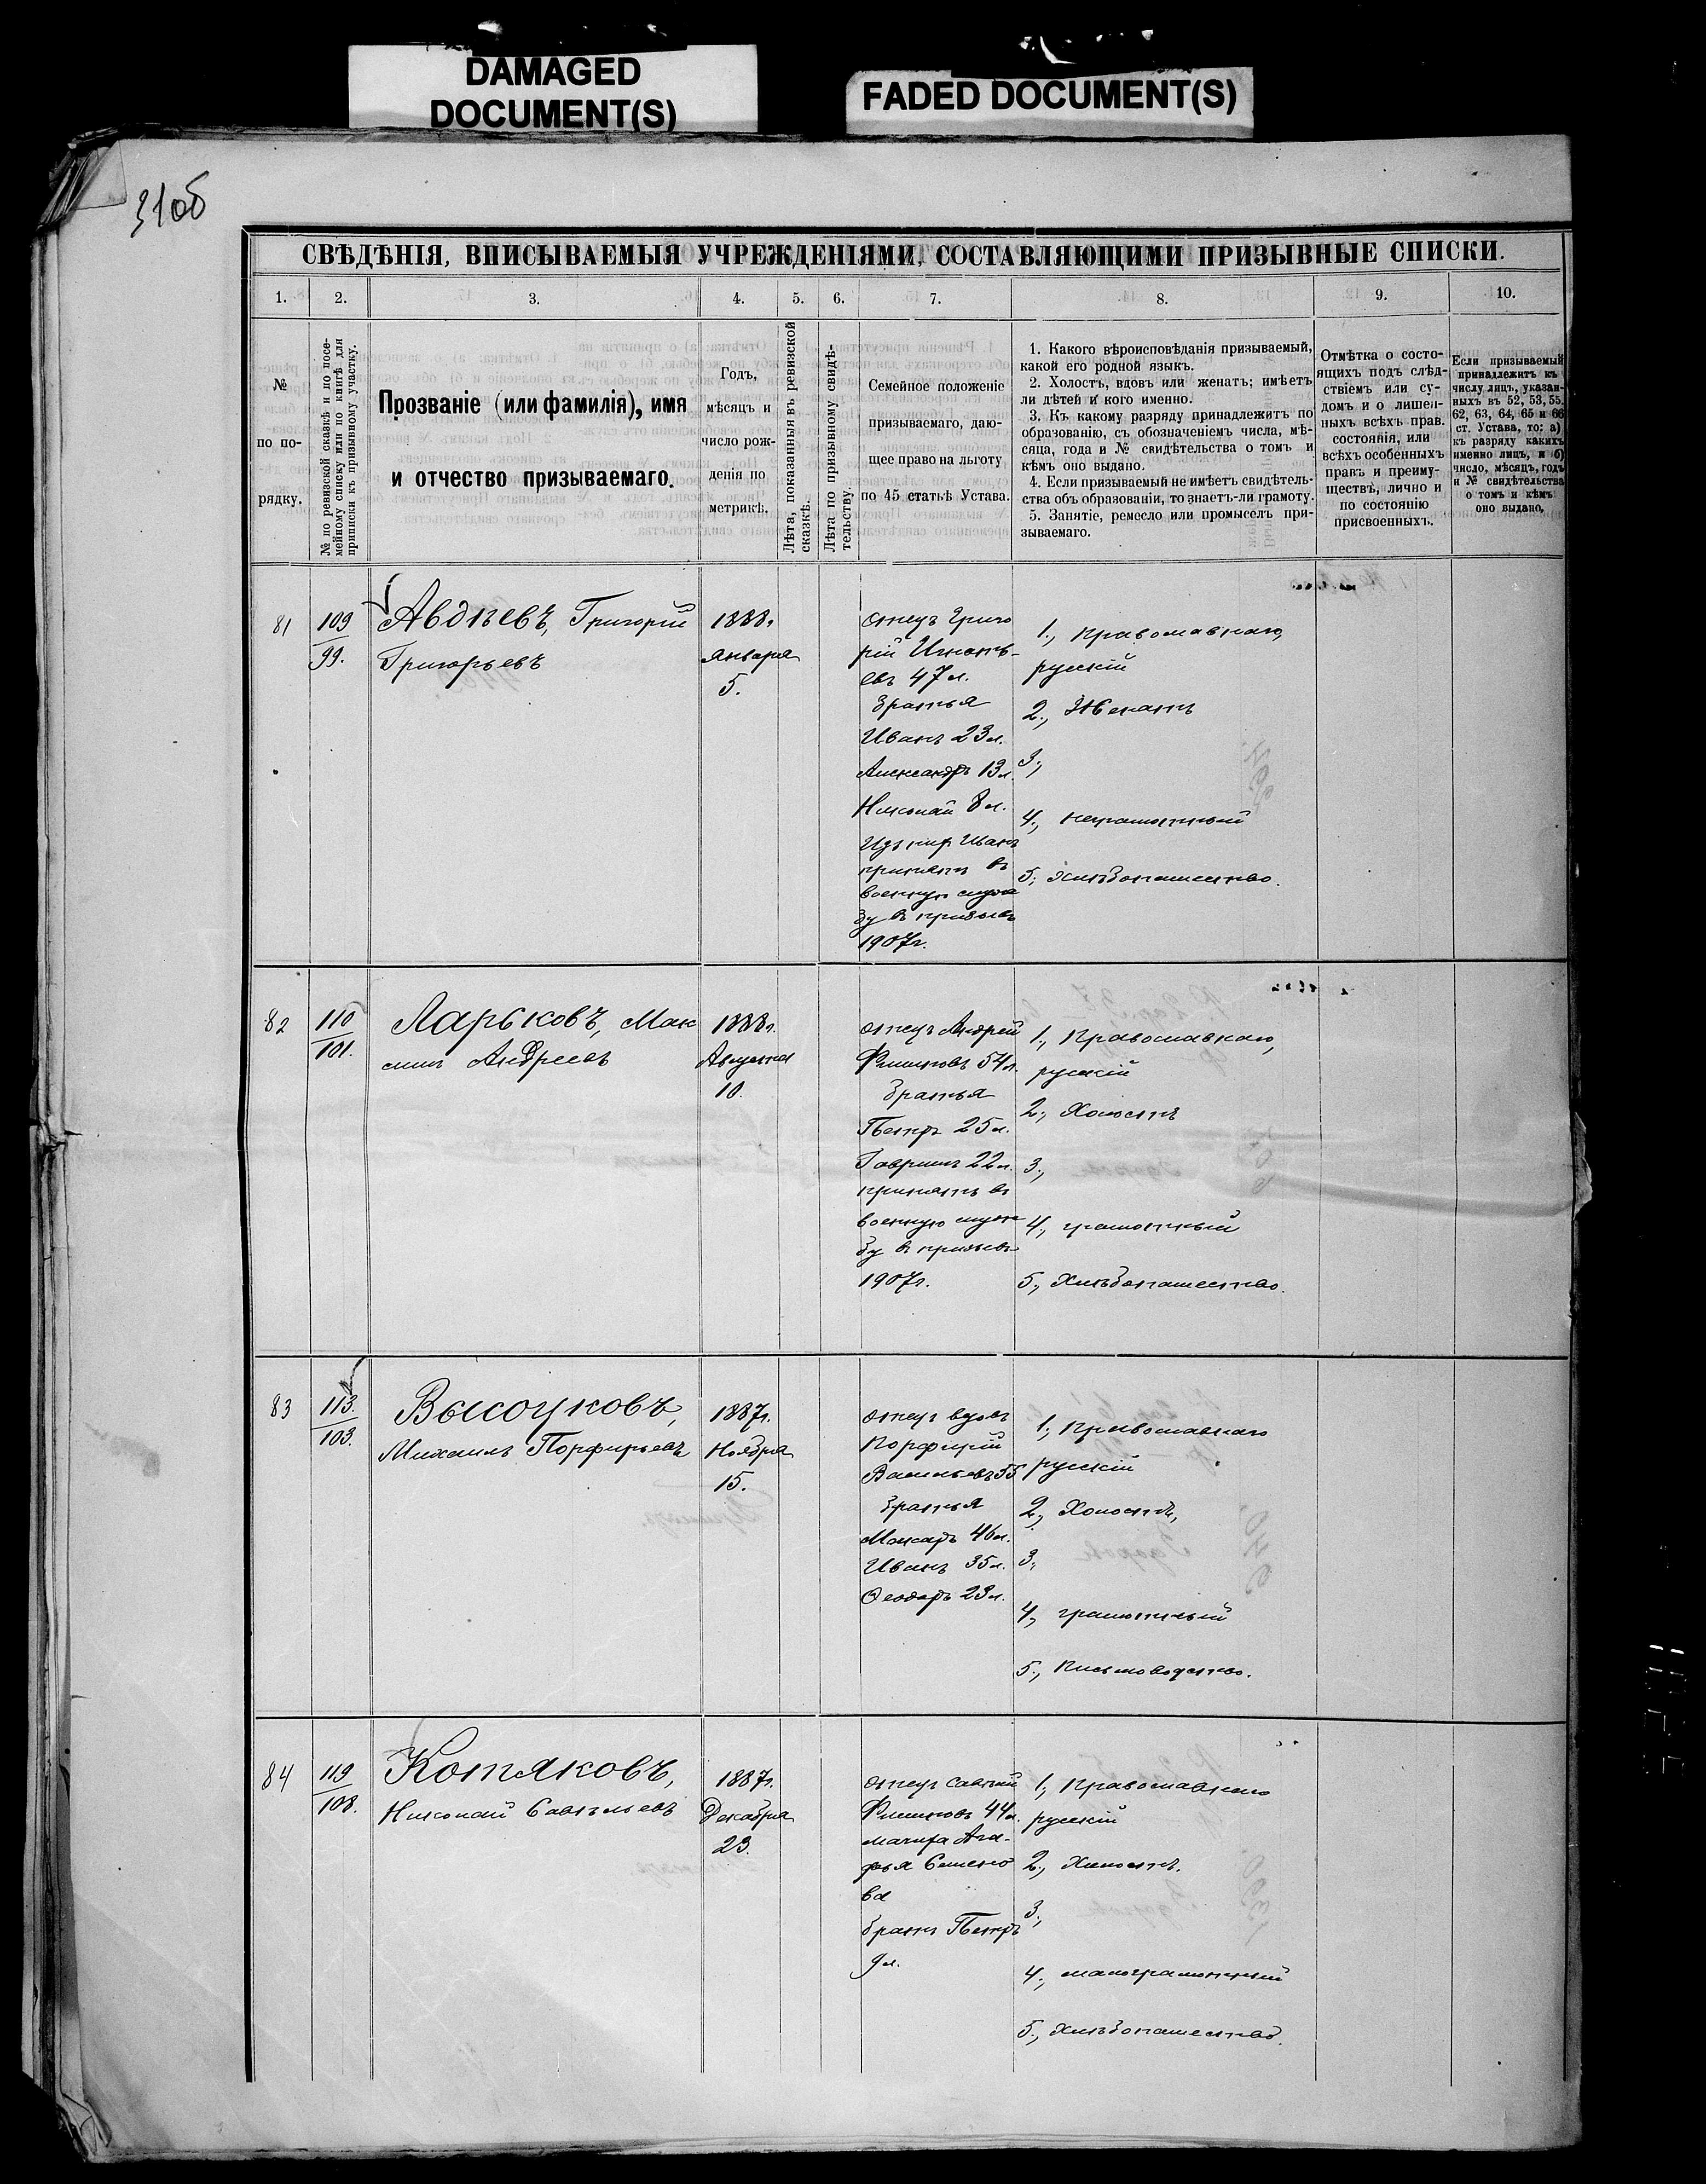 DAMAGED
DOCUMENT(S)
FADED DOCUMENT(S)
31об
СВѢДѢНІЯ, ВПИСЫВАЕМЫЯ УЧРЕЖДЕНІЯМИ, СОСТАВЛЯЮЩИМИ ПРИЗЫВНЫЕ СПИСКИ.
1. 2. 3. 4. 5. 6. 7. 8. 9. 10.
№
по по-
рядку.
№ по ревизской сказкѣ и по посе-
мейному списку или по книгѣ для
приписки къ призывному участку.
Прозваніе (или фамилія), имя
и отчество призываемаго.
Годъ,
мѣсяцъ и
число рож-
денія по
метрикѣ.
Лѣта, показанныя въ ревизской
сказкѣ.
Лѣта по призывному свидѣ-
тельству.
Семейное положеніе
призываемаго, даю-
щее право на льготу
по 45 статьѣ Устава.
1. Какого вѣроисповѣданія призываемый,
какой его родной языкъ.
2. Холостъ, вдовъ или женатъ; имѣетъ
ли дѣтей и кого именно.
3. Къ какому разряду принадлежитъ по
образованію, съ обозначеніемъ числа, мѣ-
сяца, года и № свидѣтельства о томъ и
кѣмъ оно выдано.
4. Если призываемый не имѣетъ свидѣтель-
ства объ образованіи, то знаетъ-ли грамоту.
5. Занятіе, ремесло или промыселъ при-
зываемаго.
Отмѣтка о состо-
ящихъ подъ слѣд-
ствіемъ или су-
домъ и о лишен-
ныхъ всѣхъ прав.
состоянія, или
всѣхъ особенныхъ
правъ и преиму-
ществъ, лично и
по состоянію
присвоенныхъ.
Если призываемый
принадлежитъ къ
числу лицъ, указан-
ныхъ въ 52, 53, 55,
62, 63, 64, 65 и 66
ст. Устава, то: а)
къ разряду какихъ
именно лицъ, и б)
число, мѣсяцъ, годъ
и № свидѣтельства
о томъ и кѣмъ
оно выдано.
81
109
99.
Авдѣевъ, Григорій
Григорьевъ
1888г.
Января
5.
отецъ Григо
рій Игнать-
евъ 47 л.
братья
Иванъ 23 л.
Александръ 13 л.
Николай 8 л.
Изъ нихъ Иванъ
принятъ въ
военную служ
бу въ призывъ
1907г.
1., православнаго,
русскій
2., Женатъ
3.,
4., неграмотный
5., хлѣбопашество.
82
110
101.
Ларьковъ, Мак
симъ Андреевъ
1888г.
Августа
10.
отецъ Андрей
Филиповъ 54 л.
братья
Петръ 25 л.
Гавриилъ 22 л.
принятъ въ
военную служ
бу въ призывъ
1907г.
1., Православнаго,
русскій
2., Холостъ
3.,
4., грамотный
5., Хлѣбопашество.
83
113.
103.
Высоцковъ,
Михаилъ Порфирьевъ
1887г.
Ноября
15.
отецъ вдовъ
Порфирій
Васильевъ 55
братья
46 л.
Иванъ 35 л.
Ѳеодоръ 23 л.
1., Православнаго
русскій
2., Холостъ,
3.,
4., грамотный
5., Письмоводство.
84
119
108.
Котяковъ,
Николай Савельевъ
1887г.
Декабря
23.
отецъ Савелій
Филиповъ 44 л.
мачиха Ага-
фья Семено
ва
братъ Петръ
9 л.
1., Православнаго
русскій
2., Холостъ.
3.,
4., малограмотный
5., Хлѣбопашество.